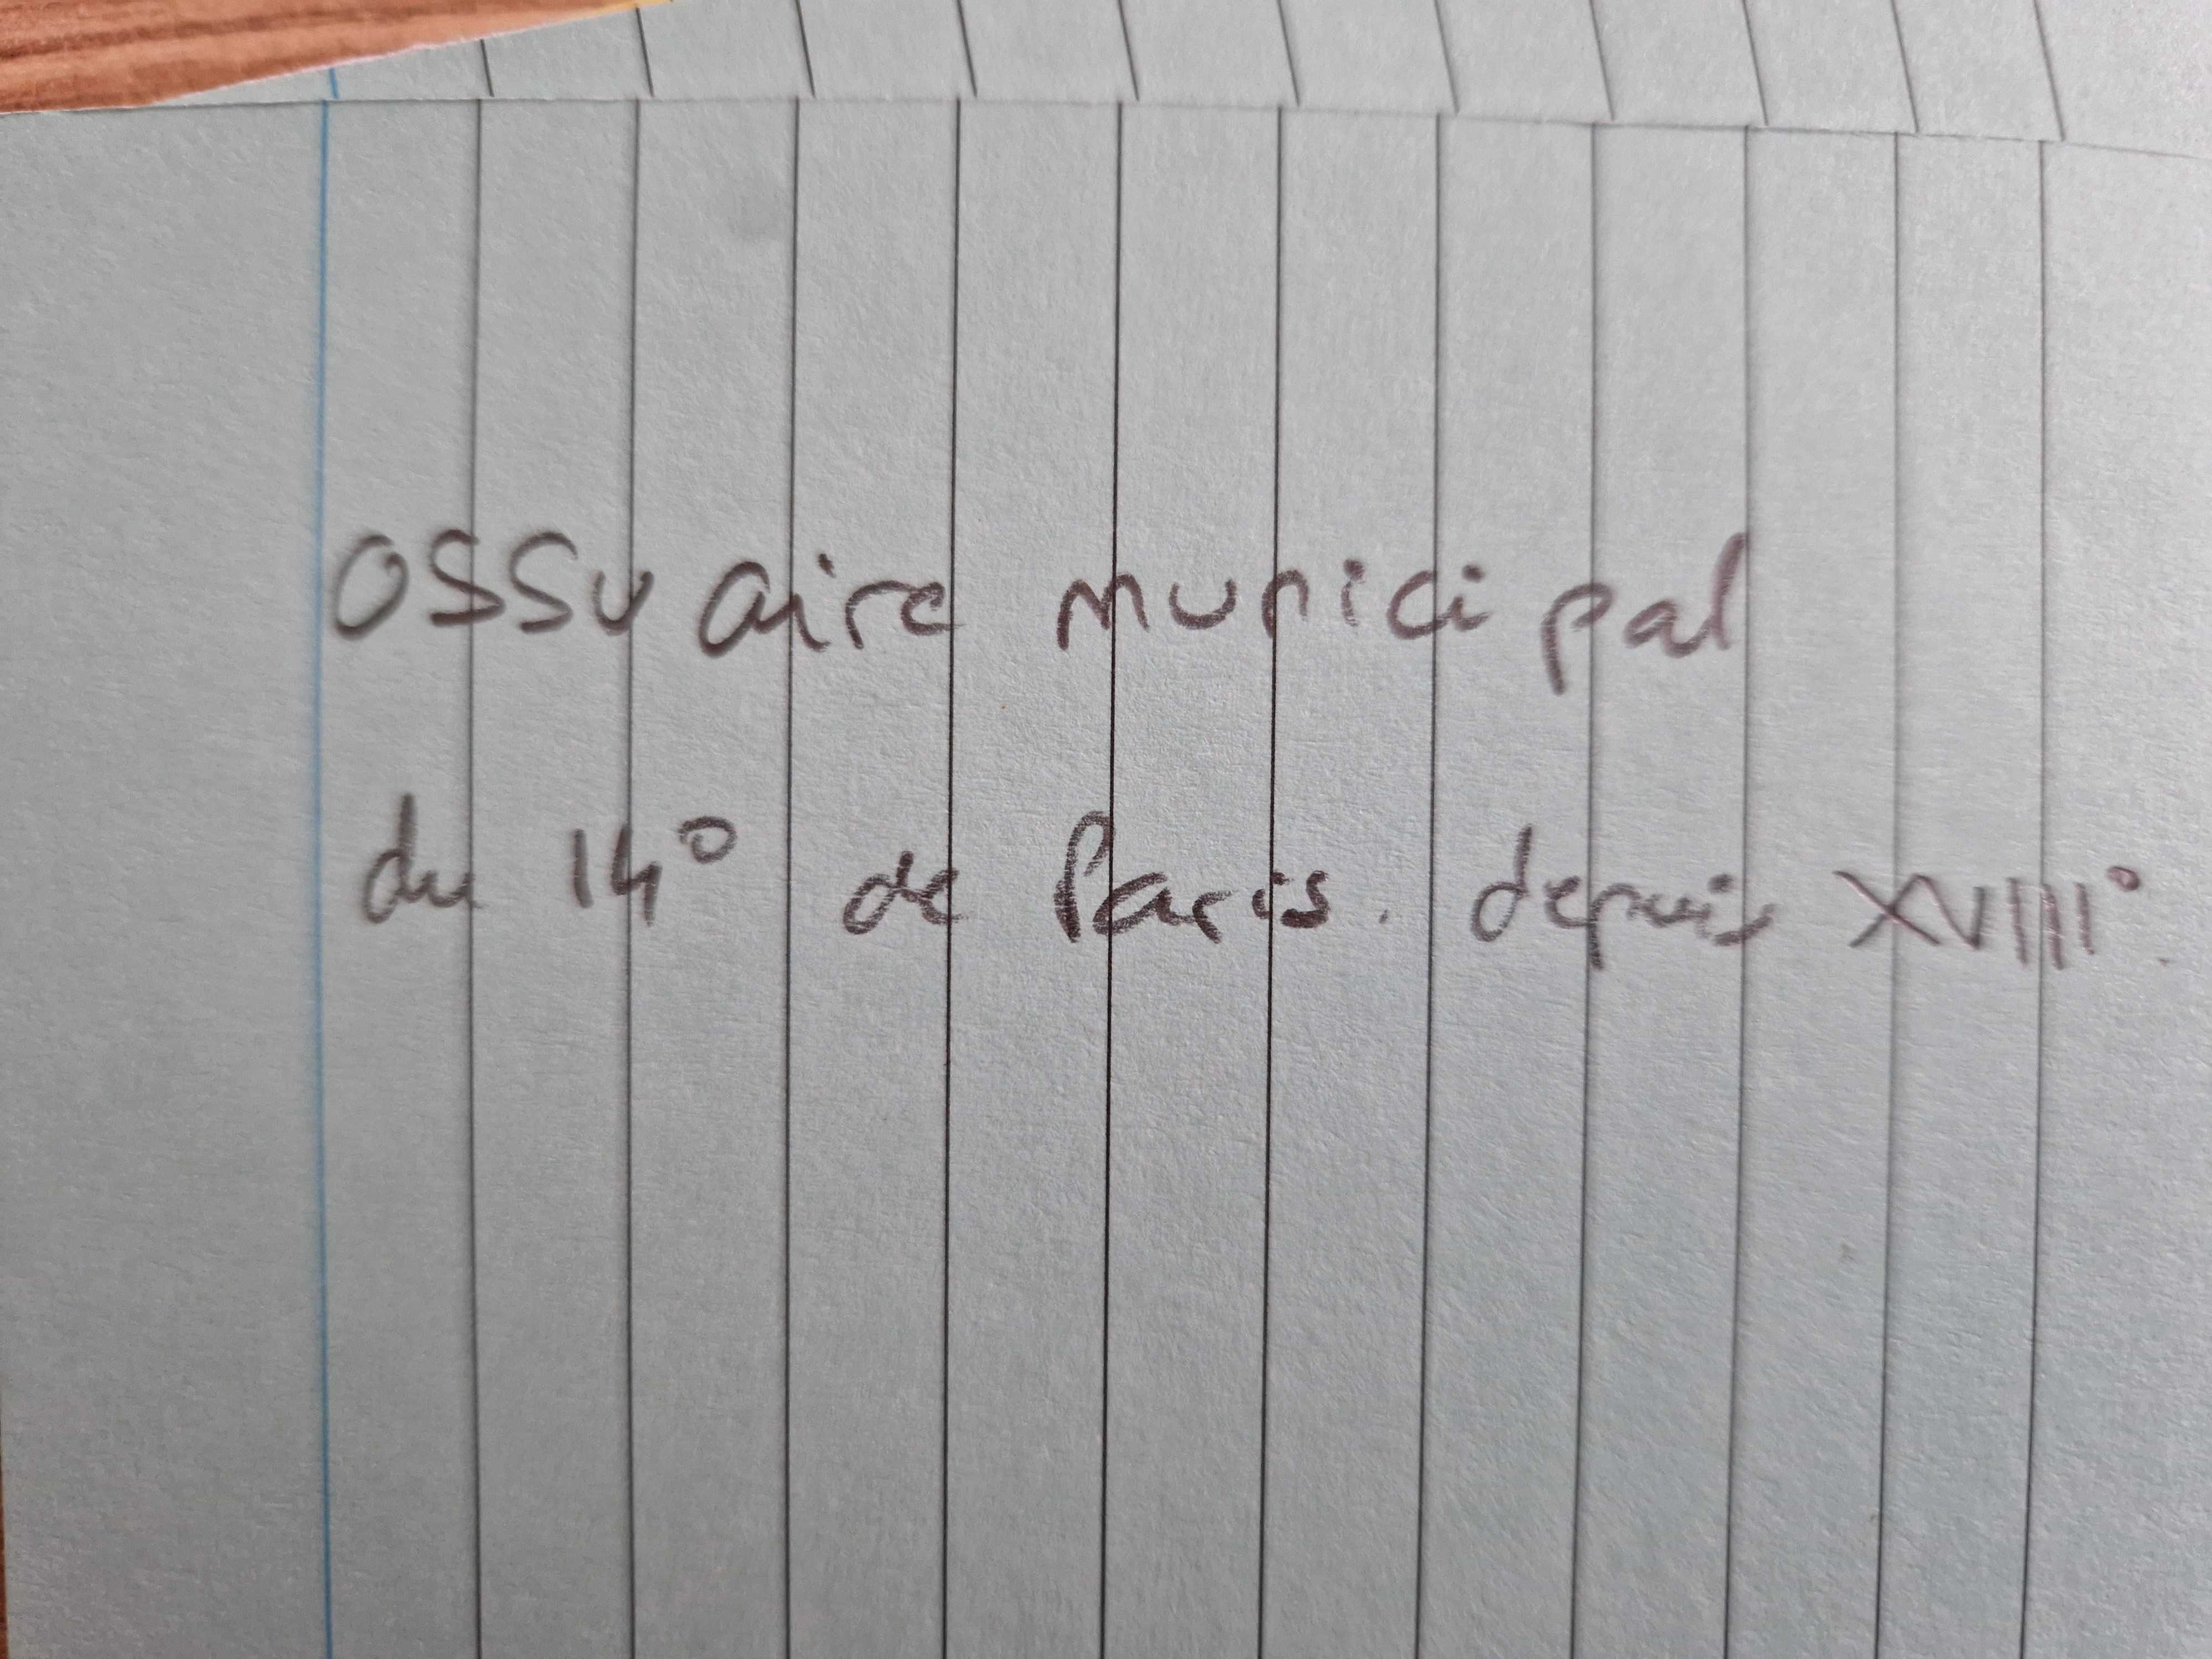 Ossuaire municipal
du 14° de Paris. depuis XVIII°.